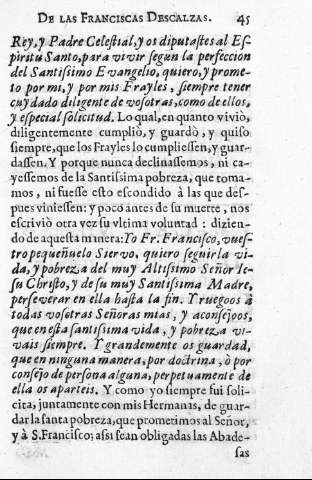 DE LAS FRANCISCAS DESCALZAS. 45
Rey, y Padre Celestial, y os diputastes al Es-
piritu Santo, para vivir segun la perfeccion
del Santissimo Evangelio, quiero, y prome-
to por mi, y por mis Frayles, siempre tener
cuydado diligente de vosotras, como de ellos,
y especial solicitud. Lo qual, en quanto viviò,
diligentemente cumpliò, y guardò, y quiso
siempre, que los Frayles lo cumpliessen, y guar-
dassen. Y porque nunca declinassemos, ni ca-
yessemos de la Santissima pobreza, que toma-
mos, ni fuesse esto escondido à las que des-
pues viniessen: y poco antes de su muerte, nos
escriviò otra vez su vltima voluntad: dizien-
do de aquesta manera: Yo Fr. Francisco, vues-
tro pequeñuelo Siervo, quiero seguir la vi-
da, y pobreza del muy Altissimo Señor Ie-
su Christo, y de su muy Santissima Madre,
perseverar en ella hasta la fin. Y ruegoos à
todas vosotras Señoras mias, y aconsejoos,
que en esta santissima vida, y pobreza vi-
vais siempre. Y grandemente os guardad,
que en ninguna manera, por doctrina, ò por
consejo de persona alguna, perpetuamente de
ella os aparteis. Y como yo siempre fui soli-
cita, juntamente con mis Hermanas, de guar-
dar la santa pobreza, que prometimos al Señor,
y à S. Francisco; assi sean obligadas las Abade-
sas